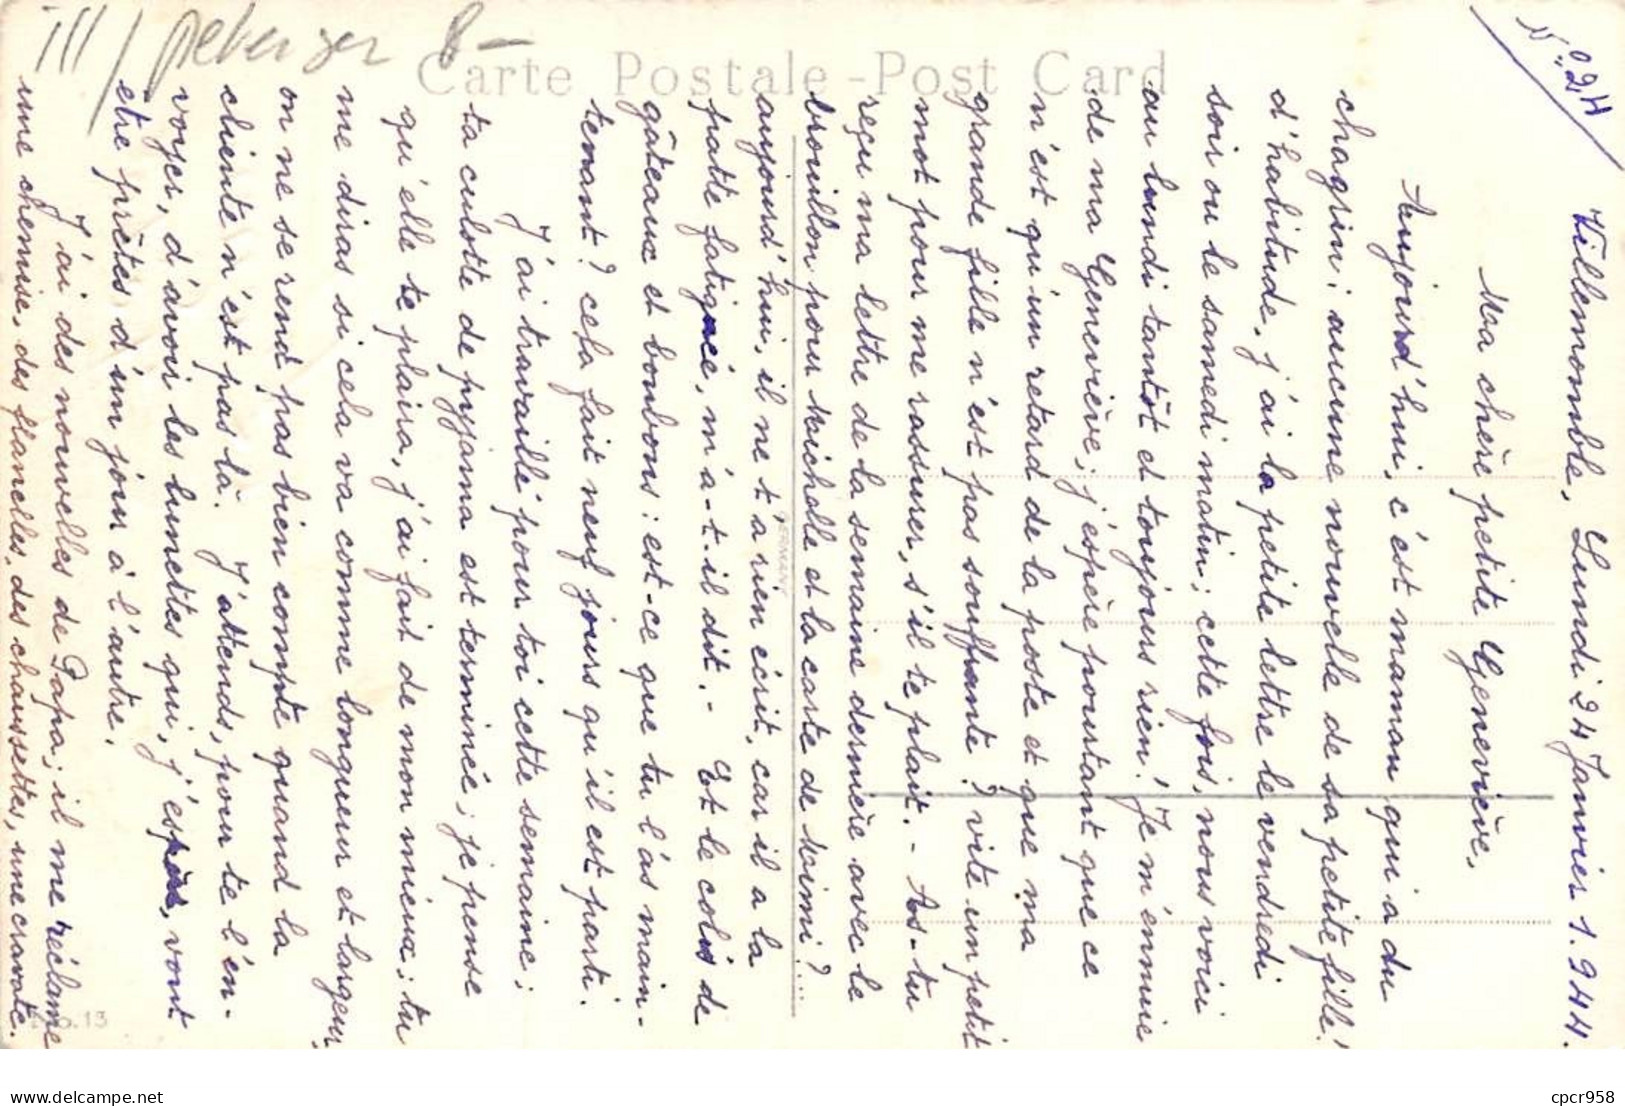 N° 24
Villemomble, Lundi 24 Janvier 1.944.
Ma chère petite Geneviève,
Aujourd'hui, c'est maman qui a du
chagrin; aucune nouvelle de sa petite fille!
d'habitude, j'ai la petite lettre le vendredi
soir ou le samedi matin; cette fois, nous voici
au lundi tantôt et toujours rien! Je m'ennuie
de ma Geneviève; j'espère pourtant que ce
n'est qu'un retard de la poste et que ma
grande fille n'est pas souffrante? vite un petit
mot pour me rassurer, s'il te plait. - As-tu
reçu ma lettre de la semaine dernière avec le
brouillon pour Michelle et la carte de Mimi?...
aujourd'hui, il ne t'a rien écrit, car il a la
patte fatiguée, m'a-t-il dit. - Et le colis de
gâteaux et bonbons: est-ce que tu l'as main-
tenant? cela fait neuf jours qu'il est parti.
J'ai travaillé pour toi cette semaine;
ta culotte de pyjama est terminée; je pense
qu'elle te plaira, j'ai fait de mon mieux; tu
me diras si cela va comme longueur et largeur,
on ne se rend pas bien compte quand la
cliente n'est pas là. J'attends, pour te l'en-
voyer, d'avoir les lunettes qui, j'espère, vont
être prêtes d'un jour à l'autre.
J'ai des nouvelles de Papa; il me réclame
une chemise, des flanelles, des chaussettes, une cravate.
Carte Postale - Post Card
GERMANY
No. 13
www.delcampe.net
cpcr958